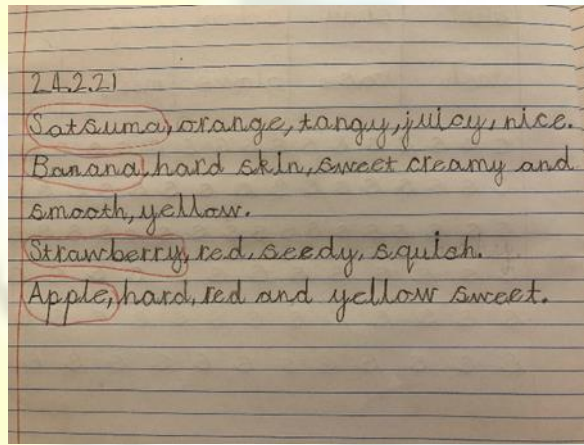 24.2.21
Satsuma, orange, tangy, juicy, nice.
Banana, hard skin, sweet creamy and
smooth, yellow.
Strawberry, red, seedy, squish.
Apple, hard, red and yellow sweet.